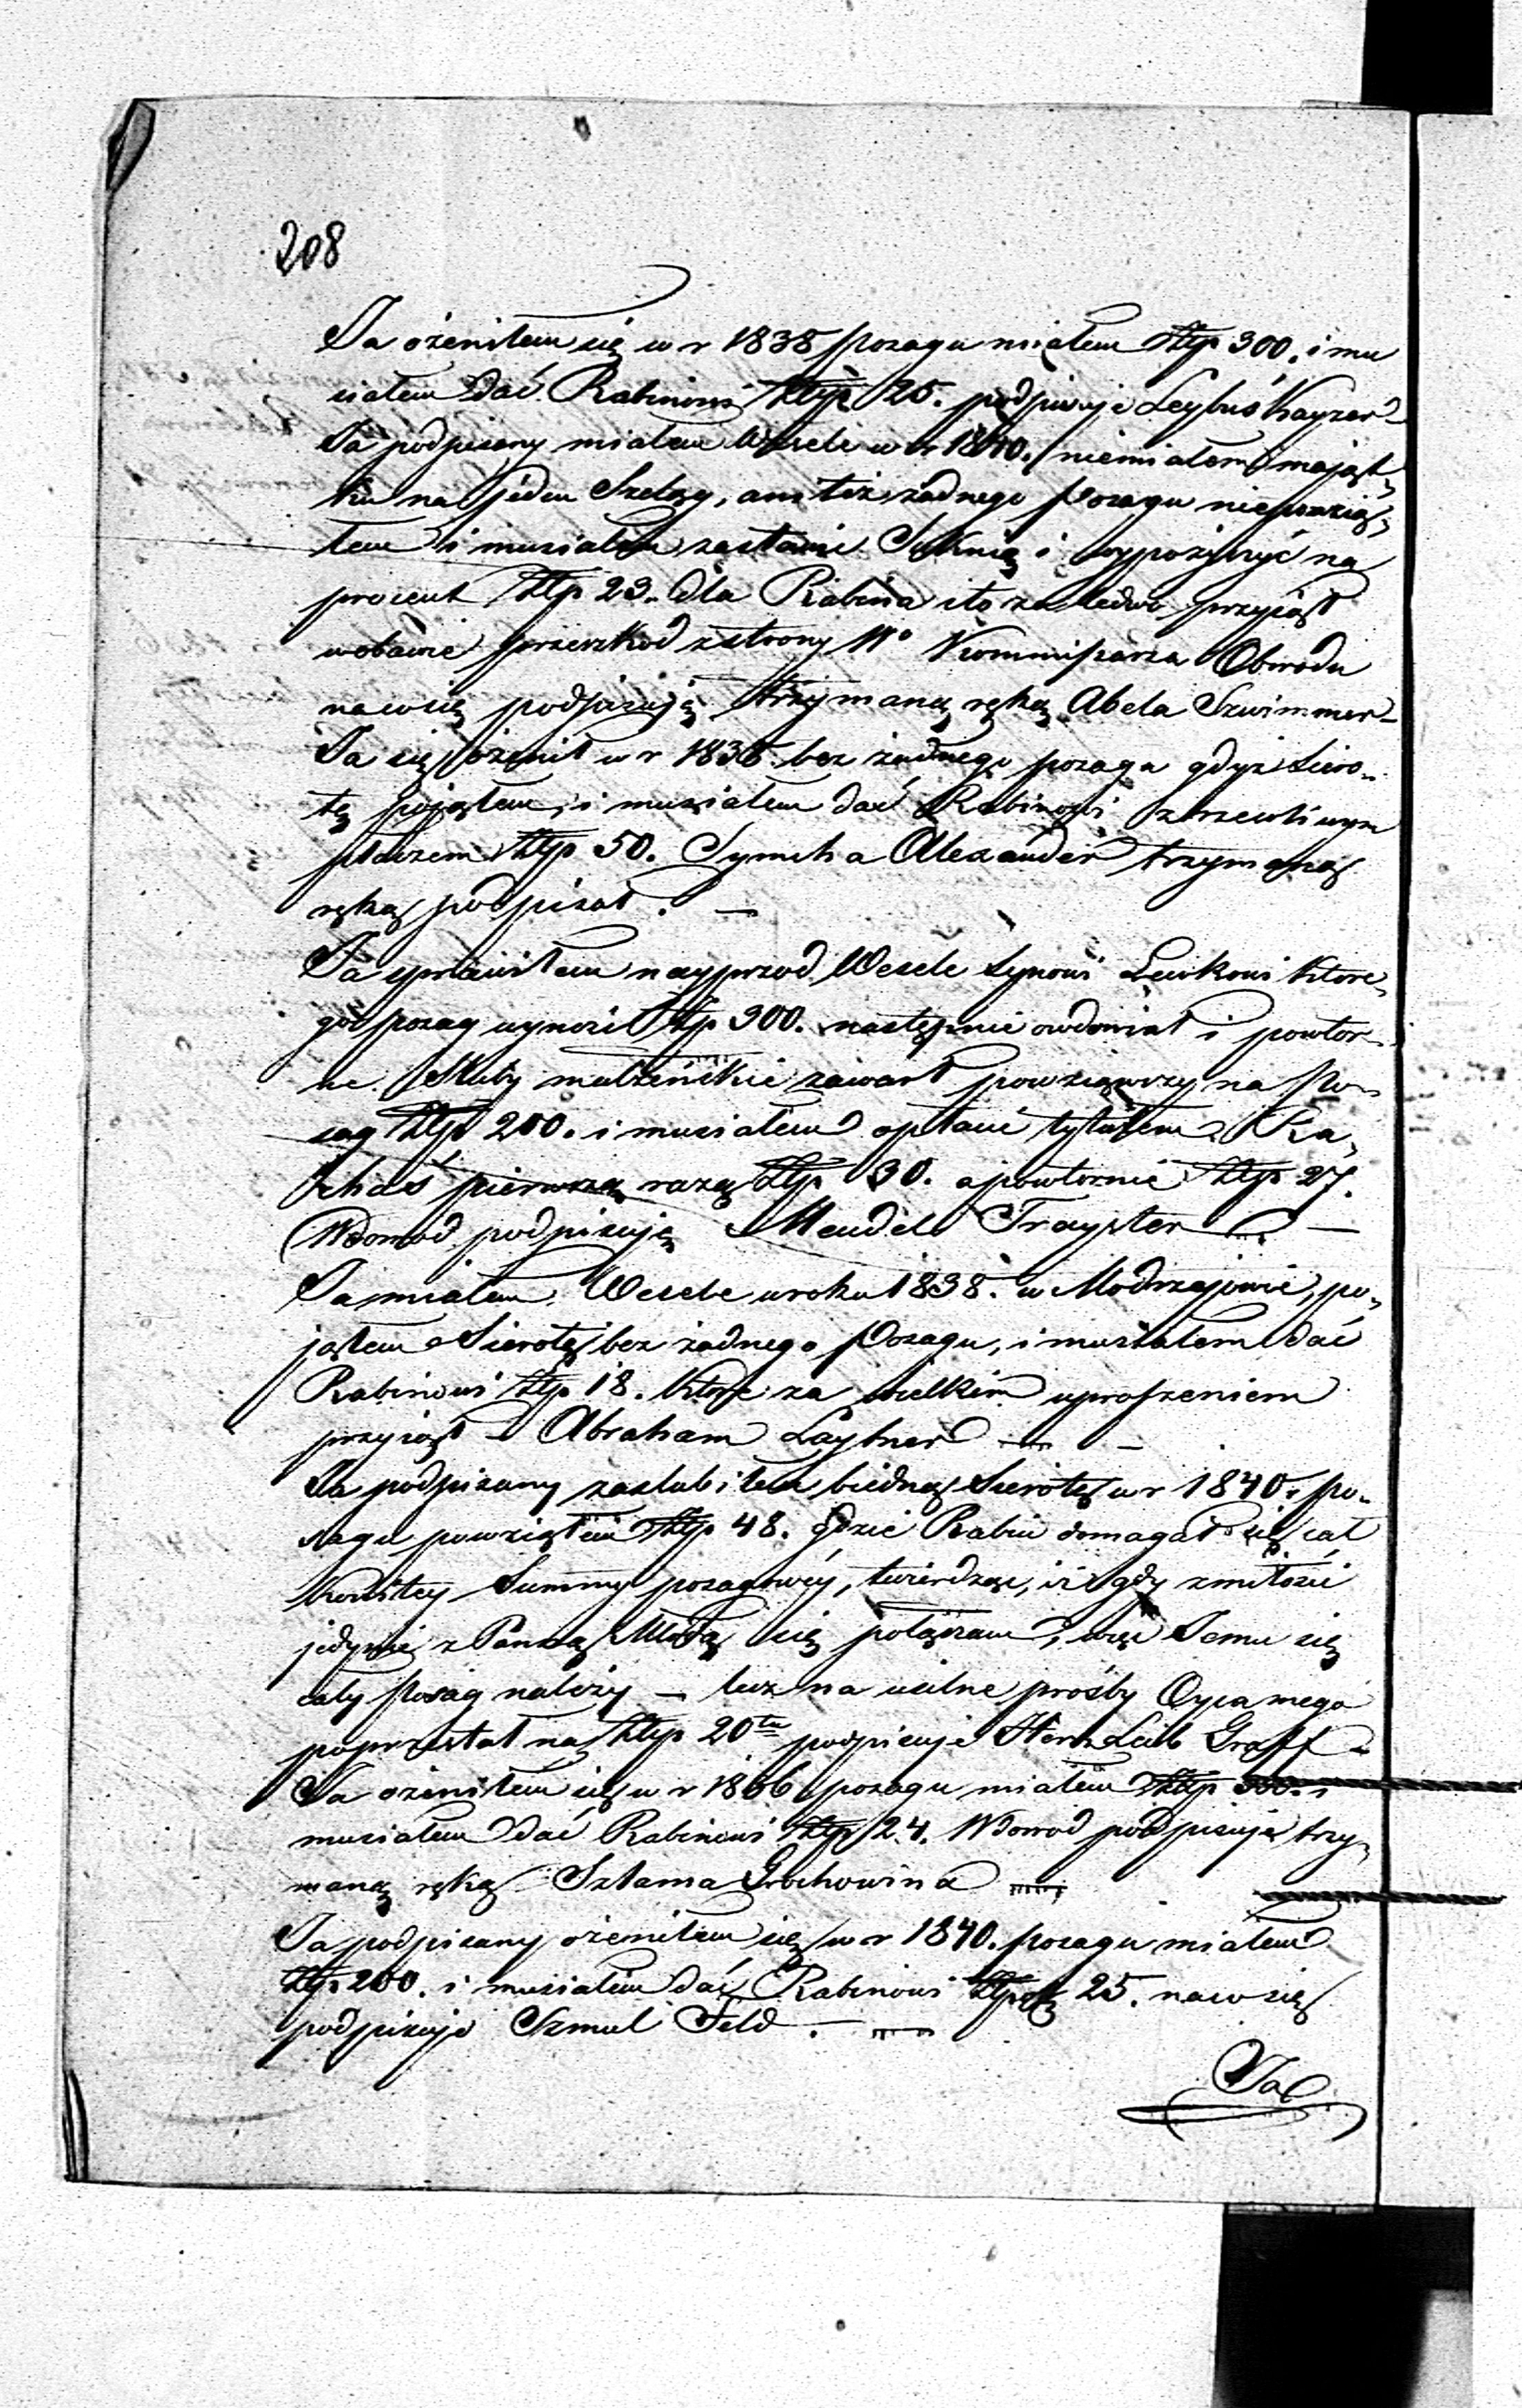 208
Ja ożeniłem się w r 1838 posagu miałem Złp 300. i mu
siałem dać Rabinowi Złp 25. podpisuje Leybuś Kayzer
Ja podpisany miałem Wesele w r 1840. niemiałem mająt„
ku na jeden Szeląg, ani też żadnego Posagu niepowzią„
łem i musiałem zastawić Suknię i wypożyczyć na
procent Złp 23. dla Rabina i to zaledwo przyiął
w obawie przeszkod z strony Wo Kommissarza Obwodu
na co się podpisuję trzymaną ręką Abela Szwimmer
Ja się ożenił w r 1838 bez żadnego posagu gdyż Siero„
tę pojąłem, i musiałem dać Rabinowi z rzewliwym
płaczem Złp 50. Symcha Alexander trzymaną
ręką podpisał. —
Ja sprawiłem nayprzod Wesele Synowi Lewkowi ktore„
go posag wynosił Złp 300. następnie owdowiał i powtor„
ne Śluby małżeńskie zawarł powziąwszy na Po„
sag Złp 200. i musiałem opłacić tytułem Ra„
chaś pierwszą razą Złp 30. a powtornie Złp 27.
W dowod podpisuję Mendel Trayster —
Ja miałem Wesele w roku 1838. w Modrzejowie, po„
jąłem Sierotę bez żadnego Posagu, i musiałem dać
Rabinowi Złp 18. ktore za wielkim uproszeniem
przyiął – Abraham Laytner —
Ja podpisany zaslubiłem biedną Sierotę w r 1840. po„
sagu powziąłem Złp 48. gdzie Rabin domagał się cał
kowitey Summy posagowéy, twierdząc, iż gdy z miłości
jedynie z Panną Młodą się połączam, więc Jemu się
cały Posag należy — lecz na usilne prośby Oyca mego
poprzestał na Złp 20tu podpisuje Herss Leib Graff –
Ja ożeniłem się w r 1836 posagu miałem Złp 300. i
musiałem dać Rabinowi Złp 24. W dowod podpisuję trzy„
maną ręką Szlama Grochowina —
Ja podpisany ożeniłem się w r 1840. posagu miałem
Złp. 200. i musiałem dać Rabinowi Złp 25. na co się
podpisuje Szmul Feld. —
Ja